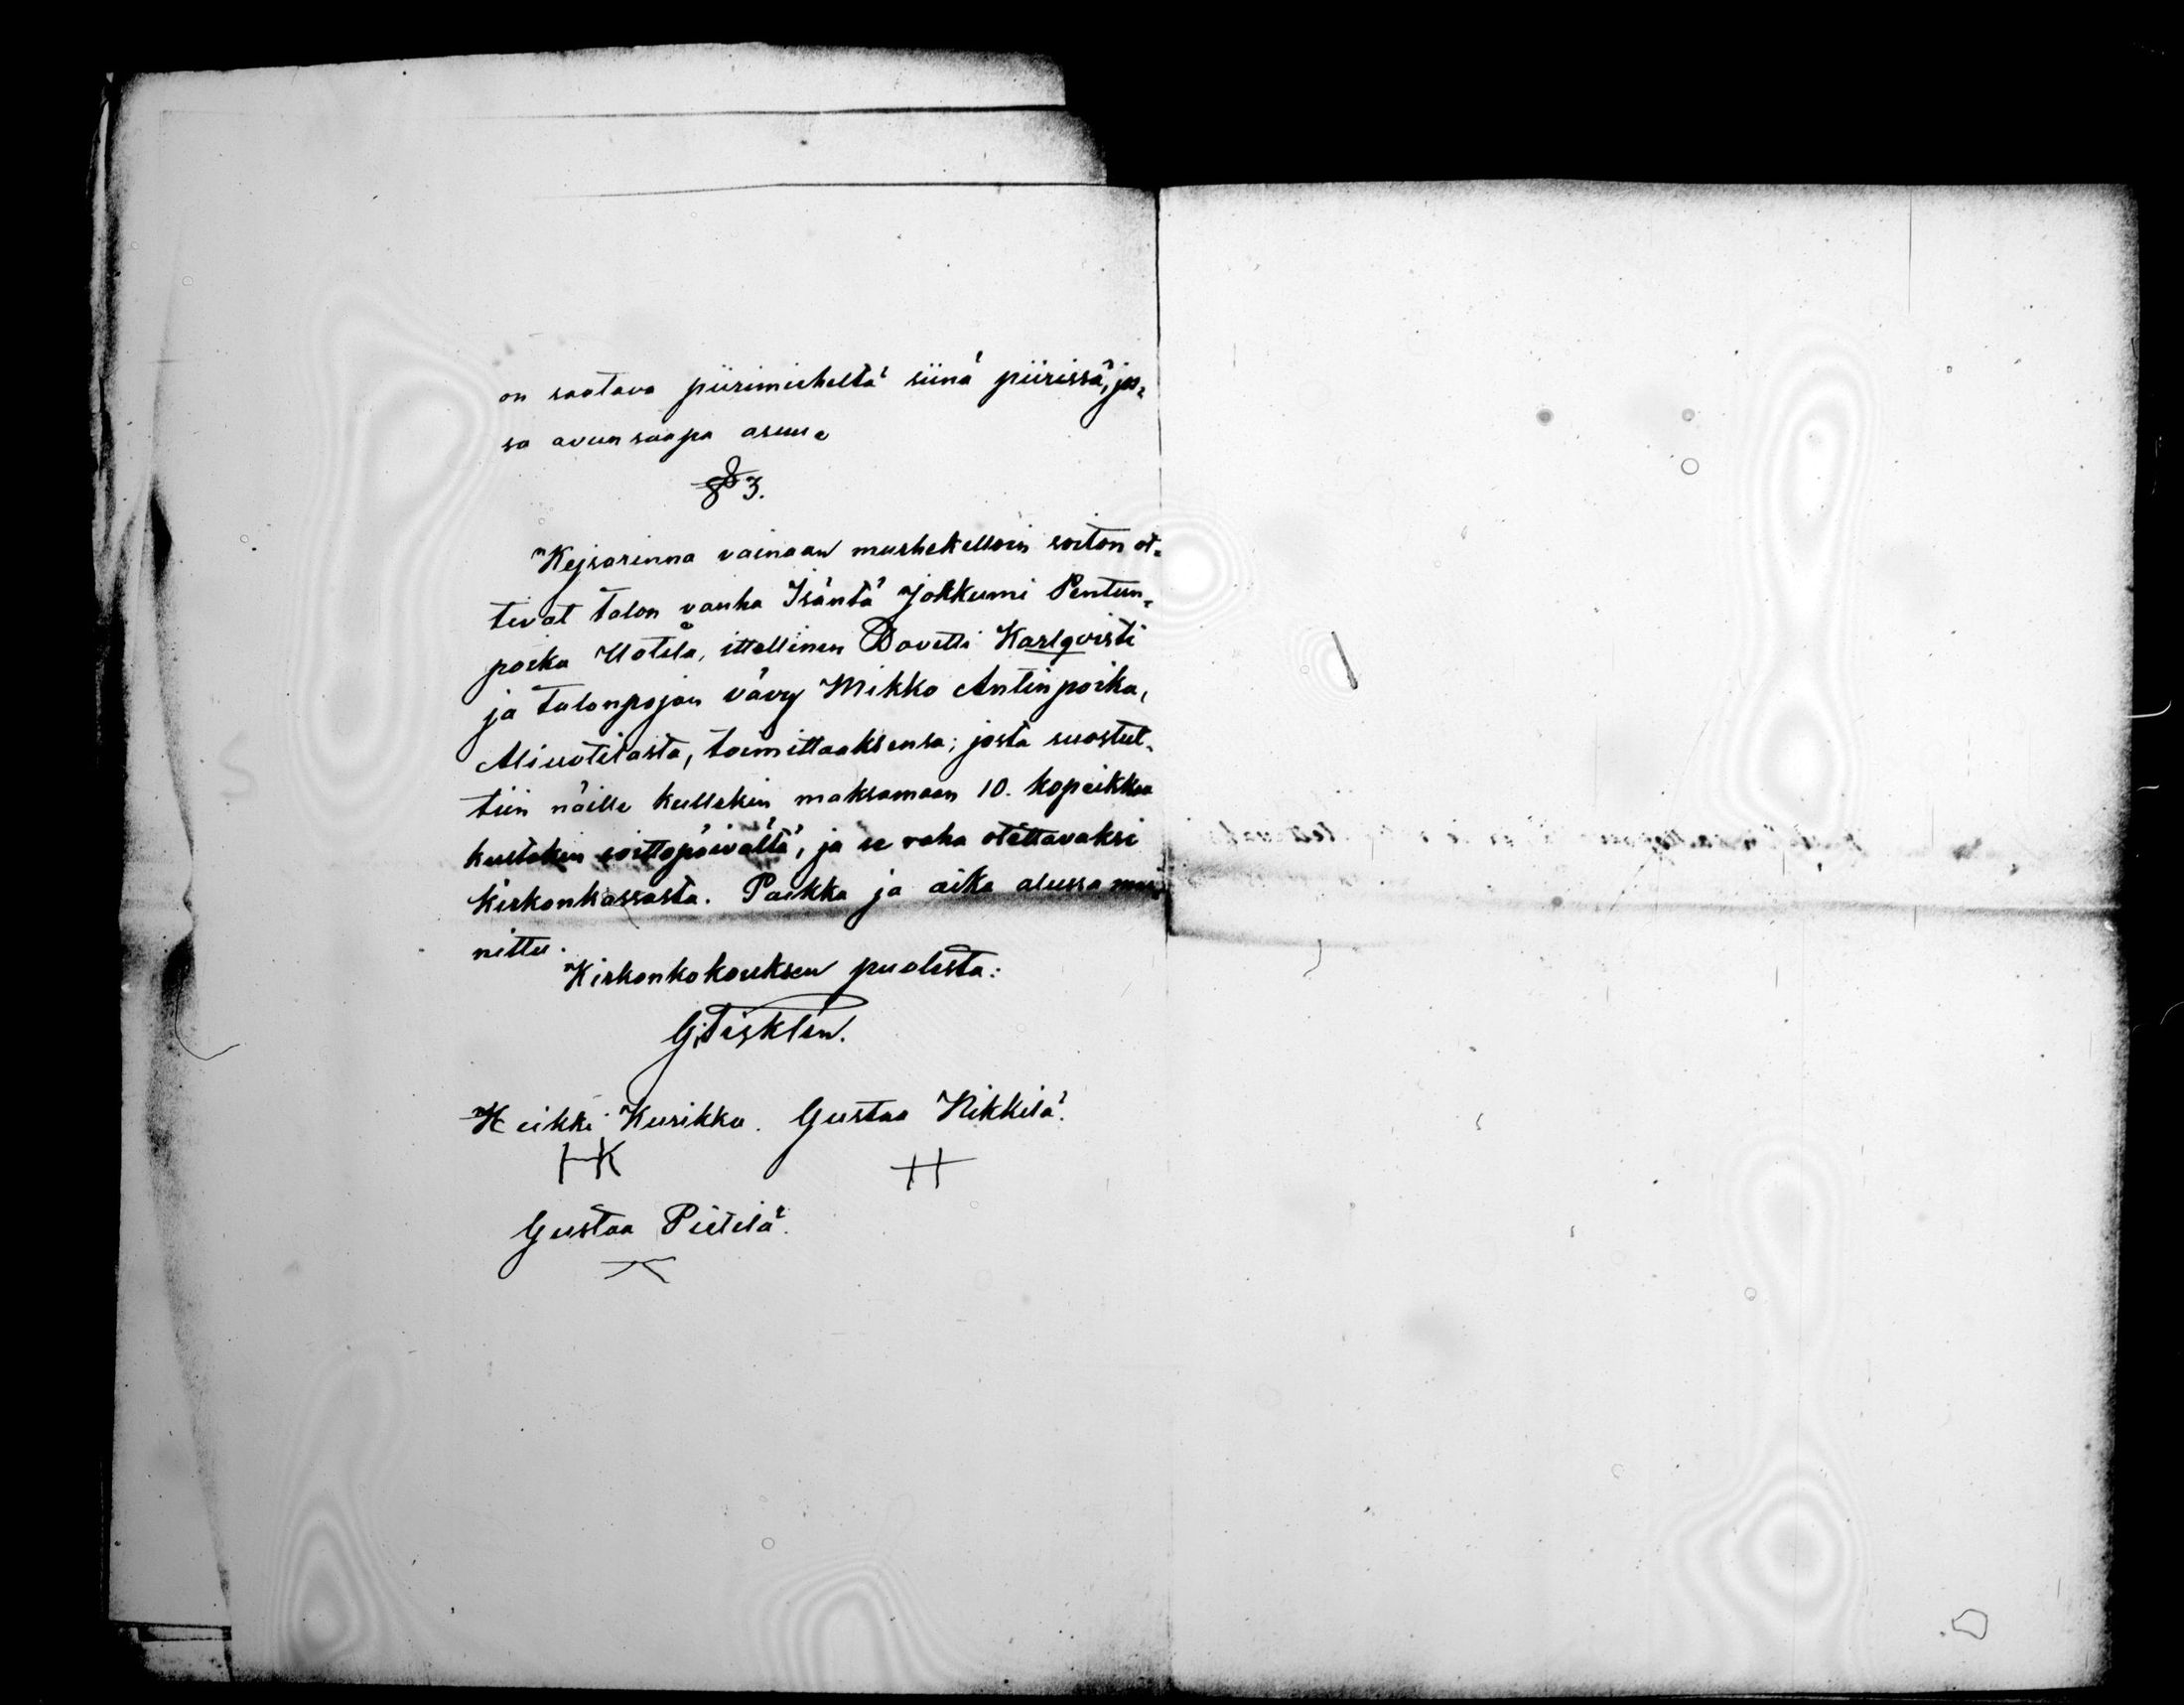 on saatava piirimieheltä siinä piirissä, jos-
sa avunsaapa asuu.
§ 3.
Kejsarinna vainaan murhekelloin soiton ot-
tivat Talon vanha Isäntä Jokkumi Pentun-
poika Uotila, ittellinen Davetti Karlqvisti
ja Talonpojan vävy Mikko Antinpoika,
Aliuotilasta, toimittaaksensa; josta suostut-
tiin näille kullekin maksamaan 10. kopeikkaa
kustakin soittopäivältä, ja se raha otettavaksi
kirkonkassasta. Paikka ja aika alussa mai-
nittu.
Kirkonkokouksen puolesta:
G. Tisklén.
Heikki Kurikka. Gustaa Nikkilä.
HK
Gustaa Pietilä.